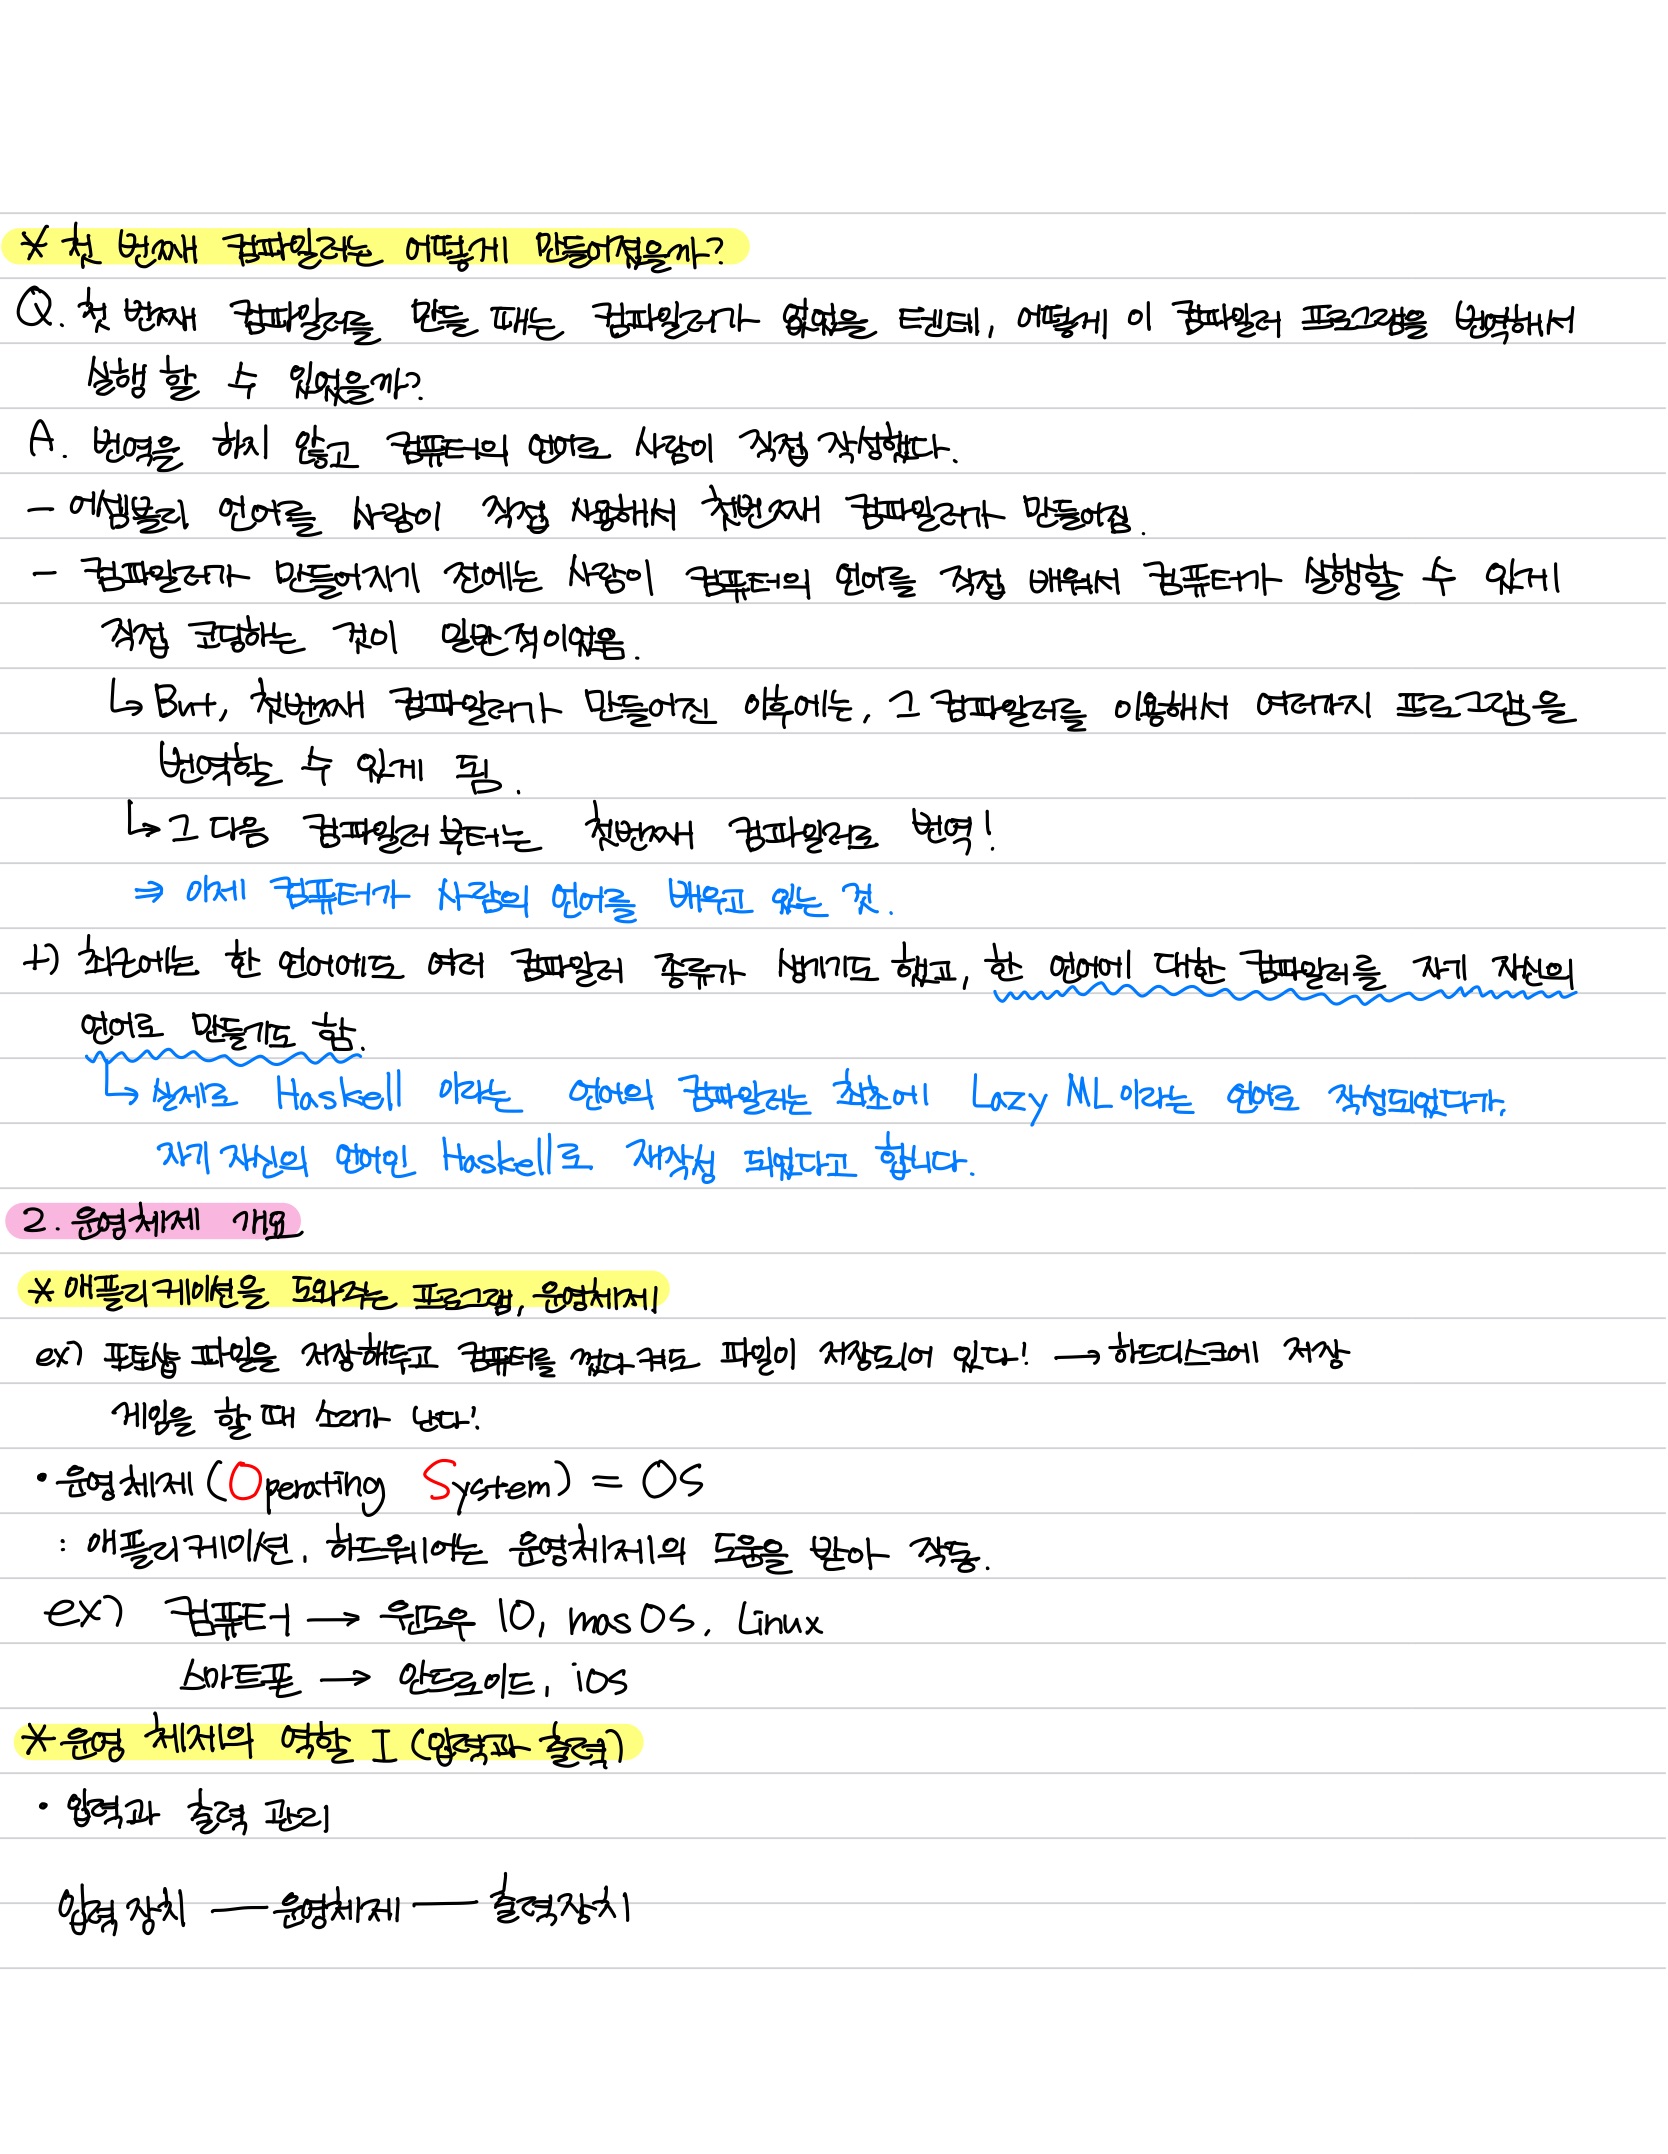 * 첫 번째 컴파일러는 어떻게 만들어졌을까?
Q. 첫 번째 컴파일러를 만들 때는 컴파일러가 없었을 텐데, 어떻게 이 컴파일러 프로그램을 번역해서
실행 할 수 있었을까?
A. 번역을 하지 않고 컴퓨터의 언어로 사람이 직접 작성했다.
- 어셈블리 언어를 사람이 직접 사용해서 첫번째 컴파일러가 만들어짐.
- 컴파일러가 만들어지기 전에는 사람이 컴퓨터의 언어를 직접 배워서 컴퓨터가 실행할 수 있게
직접 코딩하는 것이 일반적이었음.
↳ But, 첫번째 컴파일러가 만들어진 이후에는, 그 컴파일러를 이용해서 여러가지 프로그램을
번역할 수 있게 됨.
↳ 그 다음 컴파일러부터는 첫번째 컴파일러로 번역!
⇒ 이제 컴퓨터가 사람의 언어를 배우고 있는 것.
+) 최근에는 한 언어에도 여러 컴파일러 종류가 생기기도 했고, 한 언어에 대한 컴파일러를 자기 자신의
언어로 만들기도 함.
↳ 실제로 Haskell 이라는 언어의 컴파일러는 최초에 Lazy ML이라는 언어로 작성되었다가,
자기 자신의 언어인 Haskell로 재작성 되었다고 합니다.
2. 운영체제 개요
* 애플리케이션을 도와주는 프로그램, 운영체제
ex) 포토샵 파일을 저장해두고 컴퓨터를 껐다 켜도 파일이 저장되어 있다! → 하드디스크에 저장
게임을 할 때 소리가 난다!
• 운영체제 (Operating System) = OS
: 애플리케이션, 하드웨어는 운영체제의 도움을 받아 작동.
ex) 컴퓨터 → 윈도우 10, mas OS, Linux
스마트폰 → 안드로이드, iOS
* 운영 체제의 역할 I (입력과 출력)
• 입력과 출력 관리
입력 장치 — 운영체제 — 출력장치